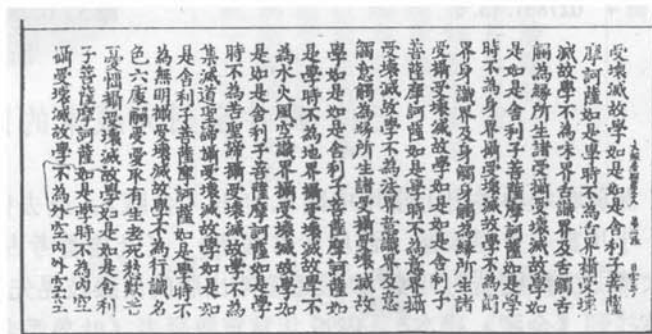 受壞滅故學如是如是舍利子菩薩
摩訶薩如是學時不為舌界攝受壞
滅故學不為味界舌識界及舌觸舌
觸為緣所生諸受攝受壞滅故學如
是如是舍利子菩薩摩訶薩如是學
時不為身界攝受壞滅故學不為觸
界身識界及身觸身觸為緣所生諸
受攝受壞滅故學如是如是舍利子
菩薩摩訶薩如是學時不為意界攝
受壞滅故學不為法界意識界及意
觸意觸為緣所生諸受攝受壞滅故
學如是如是舍利子菩薩摩訶薩如
是學時不為地界攝受壞滅故學不
為水火風空識界攝受壞滅故學如
是如是舍利子菩薩摩訶薩如是學
時不為苦聖諦攝受壞滅故學不為
集滅道聖諦攝受壞滅故學如是如
是舍利子菩薩摩訶薩如是學時不
為無明攝受壞滅故學不為行識名
色六處觸受愛取有生老死愁歎苦
憂惱攝受壞滅故學如是如是舍利
子菩薩摩訶薩如是學時不為內空
攝受壞滅故學不為外空內外空空